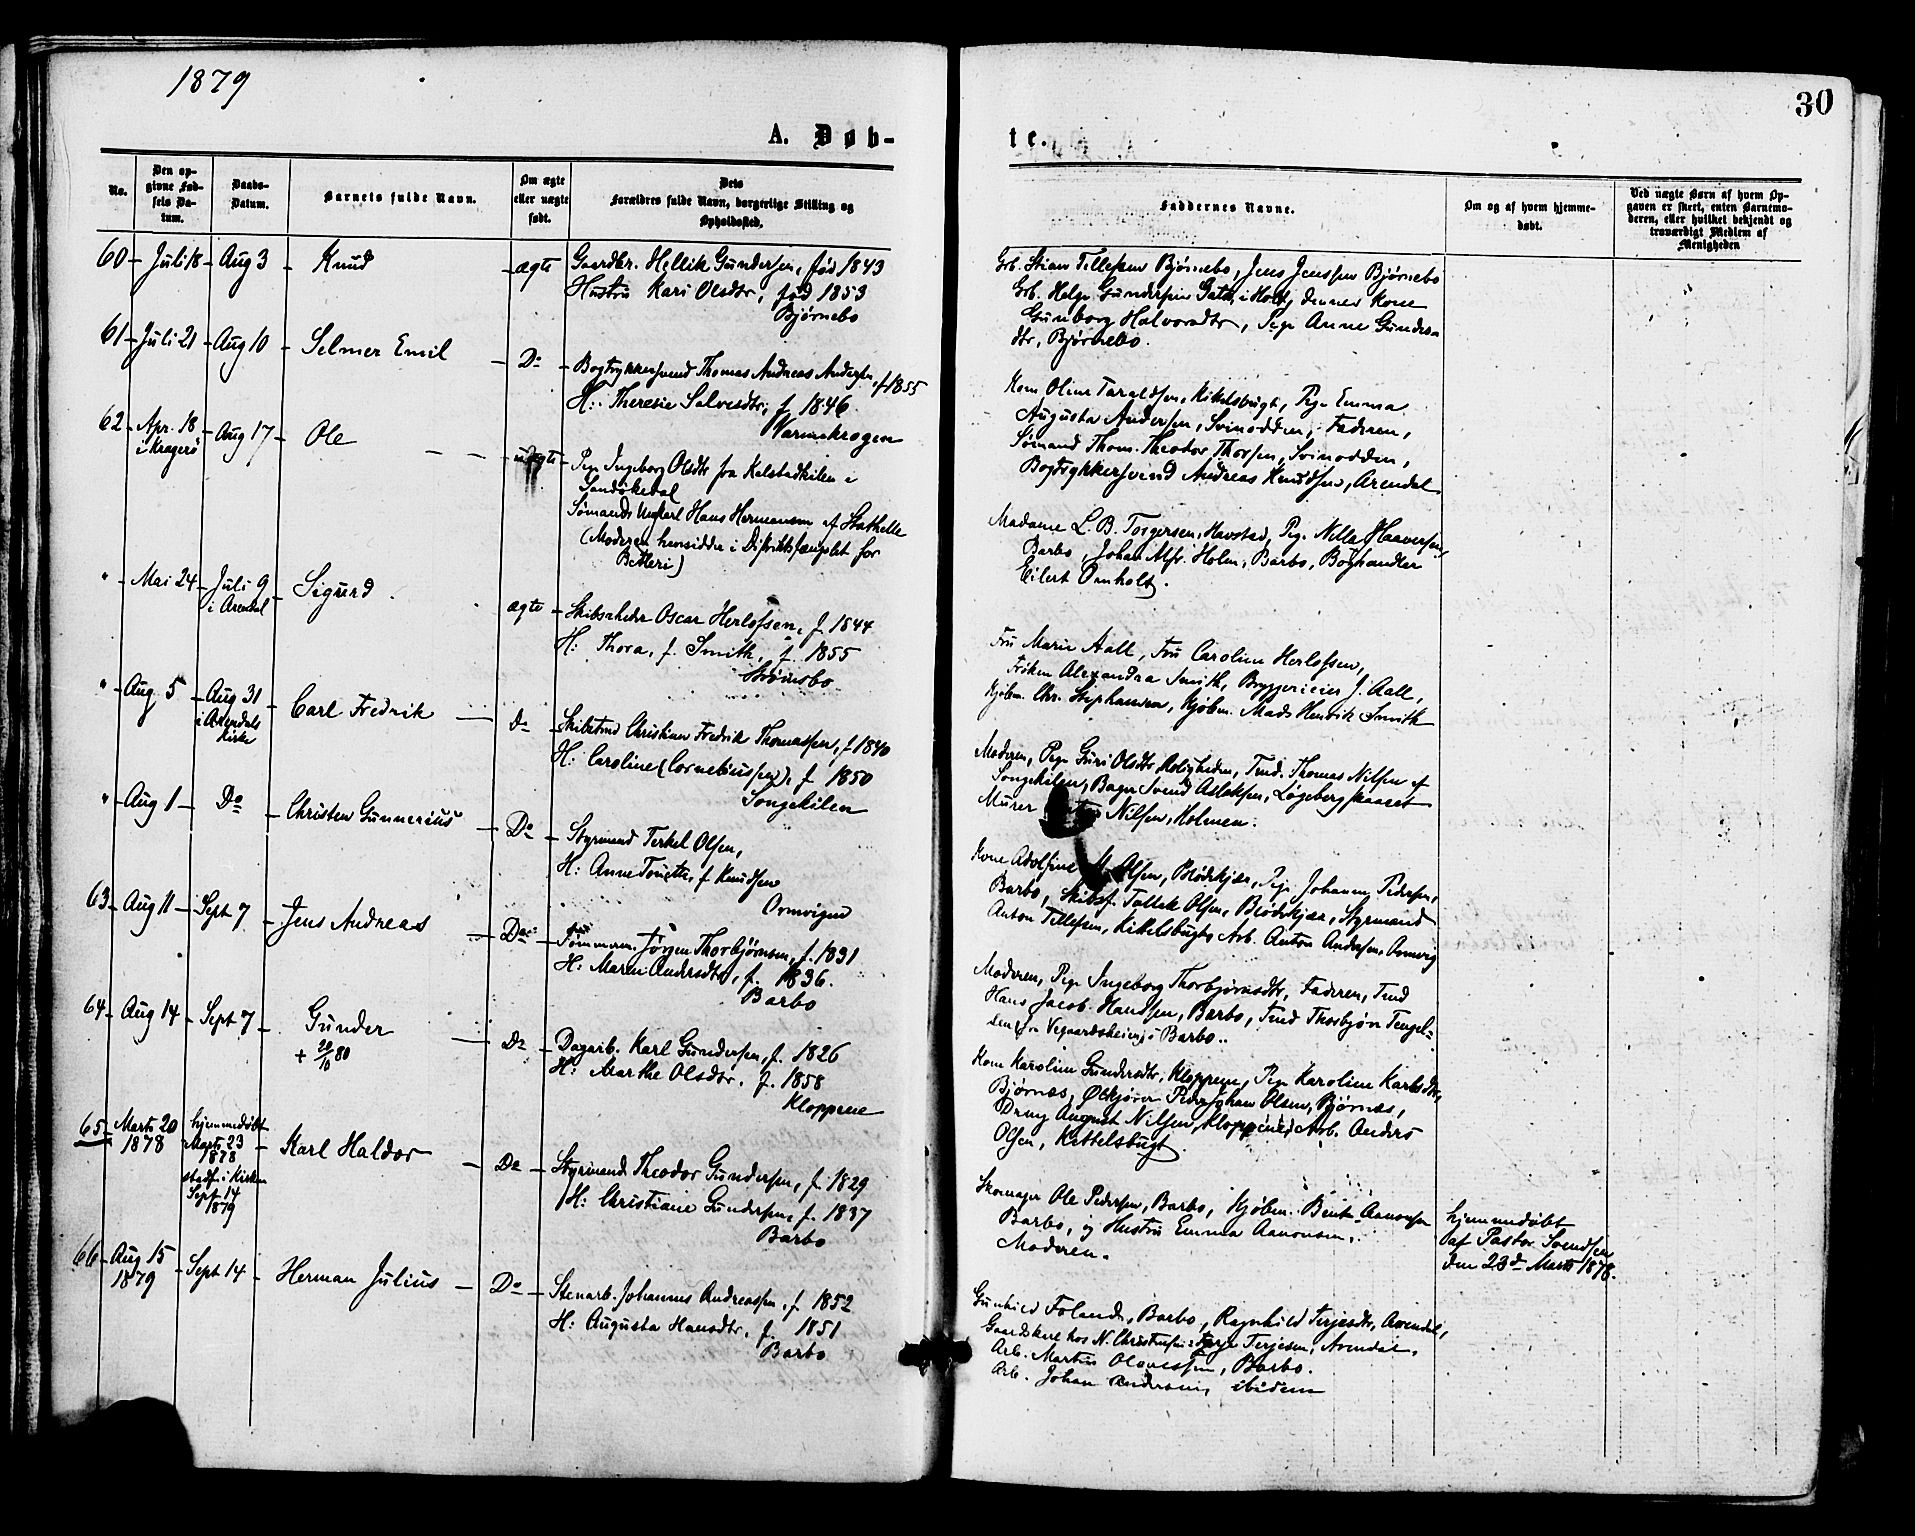 1879
30
A. Døb-
te.
No.
Den op-
givne Fød-
sels Da-
tum.
Daabs-
Datum.
Barnets fulde Navn.
Om ægte
eller uægte
født.
Dets
Forældres fulde Navn, borgerlige Stilling og
Opholdssted.
Faddernes Navne.
Om og af hvem hjemme-
døbt.
Ved uægte Børn af hvem Op-
gaven er skeet, enten Barnemo-
deren, eller hvilket bekjendt og
troværdigt Medlem af
Menigheden
60 Juli 18 Aug 3 Knud ægte Gaardbr. Hellik Gundersen, fød 1843
Hustru Kari Olsdtr, fød 1853
Bjørnebo
Grb. Stian Tellefsen Bjørnebo, Jens Jenssen Bjørnebo
Grb. Helge Gundersen i Holt, dennes Kone
Gunborg Halvorsdtr, Pige Anne Gunders
dtr, Bjørnebo.
61 Juli 21 Aug 10 Selmer Emil Do Bogtrykkersvend Thomas Andreas Andersen, f 1855
H: Therese Salvesdtr, f 1846.
Warmekrogen
Kone Oline Taraldsen, Kittelsbugt, Pige Emma
Augusta Andersen, Svinodden, Faderen,
Sømand Thom. Theodor Thorsen, Svinodden,
Bogtrykkersvend Andreas Knudsen, Arendal
62 Apr. 18
i Kragerø
Aug 17 Ole uægte Pige Ingeborg Olsdtr fra Kalstadkilen i
Sandøkedal
Sømand Ungkarl Hans Hermansen af Stathelle
(Moderen hensidder i Distriktsfængslet for
Betleri)
Madame L. B. Torgersen, Havstad, Pige Nella Haaversen,
Barbo, Johan Alfr. Holm, Barbo, Boghandler
Eilert Ornholt.
" Mai 24 Juli 9
i Arendal
Sigurd ægte Skibsreder Oscar Herlofsen, f. 1844
H: Thora, f. Smith, f. 1855
Strømsbo
Fru Marie Aall, Fru Caroline Herlofsen,
Frøken Alexandra Smith, Bryggerieier J. Aall,
Kjøbm. Chr. Stephansen, Kjøbm. Mads Henrik Smith
" Aug 5 Aug 31
i Arendals
Kirke
Carl Fredrik Do Skibstmd Christian Fredrik Thomassen, f 1840
H: Caroline (Corneliussen), f 1850
Songekilen
Moderen, Pige Guri Olsdtr, Roligheden, Tmd. Thomas Nilsen af
Songekilen, Bager Svend Aslaksen, Løgebergskaaret
Murer Nilsen, Holmen.
" Aug 1 Do Christen Gunnerius Do Styrmand Terkel Olsen,
H: Anne Tonette, f Knudsen
Ormvigen
Kone Adolfine M. Olsen, Blødekjær, Pige Johanne Pedersen,
Barbo, Skibsf. Tallak Olsen, Blødekjær, Styrmand
Anton Tellefsen, Kittelsbugt, Arb. Anton Andersen, Ormvig
63 Aug 11 Sept 7 Jens Andreas Do Tømmerm. Jørgen Thorbjørnsen, f. 1831
H: Maren Andersdtr, f. 1836.
Barbo
Moderen, Pige Ingeborg Thorbjørnsdtr, Faderen, Tmd
Hans Jacob Hansen, Barbo, Tmd Thorbjørn Tengel-
sen (fra Vegaardsheien) i Barbo.
64 Aug 14 Sept 7 Gunder
+ 20/10 80
Do Dagarb. Karl Gundersen, f. 1826
H: Marthe Olsdtr. f. 1858
Kloppene
Kone Karoline Gundersdtr, Kloppene, Pige Karoline Karlsdtr,
Bjørnæs, Ølkjører Peder Johan Olsen, Bjørnæs,
Dreng August Nilsen, Kloppene, Arb. Anders
Olsen, Kittelsbugt
65 Marts 20
1878
hjemmedøbt
Marts 23
1878
stadf. i Kirken
Sept 14
1879
Karl Haldor Do Styrmand Theodor Gundersen, f. 1829
H: Christiane Gundersen, f. 1837
Barbo
Skomager Ole Pedersen, Barbo, Kjøbm. Bent Aanonsen
Barbo, og Hustru Emma Aanonsen,
Moderen.
hjemmedøbt
af Pastor Svendsen
den 23de Marts 1878.
66 Aug 15
1879
Sept 14 Herman Julius Do Stenarb. Johannes Andreassen, f. 1852
H: Augusta Hansdtr, f. 1851
Barbo
Gunhild Foland, Barbo, Ragnhild Terjesdtr, Arendal,
Gaardskarl hos N. Christensen: Terje Terjesen, Arendal,
Arb. Martin Olaussen, Barbo.
Arb. Johan Andersen, ibidem